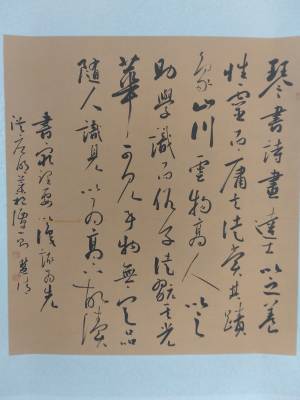 琴書詩畫達士以之養
性靈而庸夫徒賞其蹟
象山川雲物高人以之
助學識而俗子徒翫其光
華可見事物無定品
隨人識見以為高下故讀
書窮理要以識趣為先